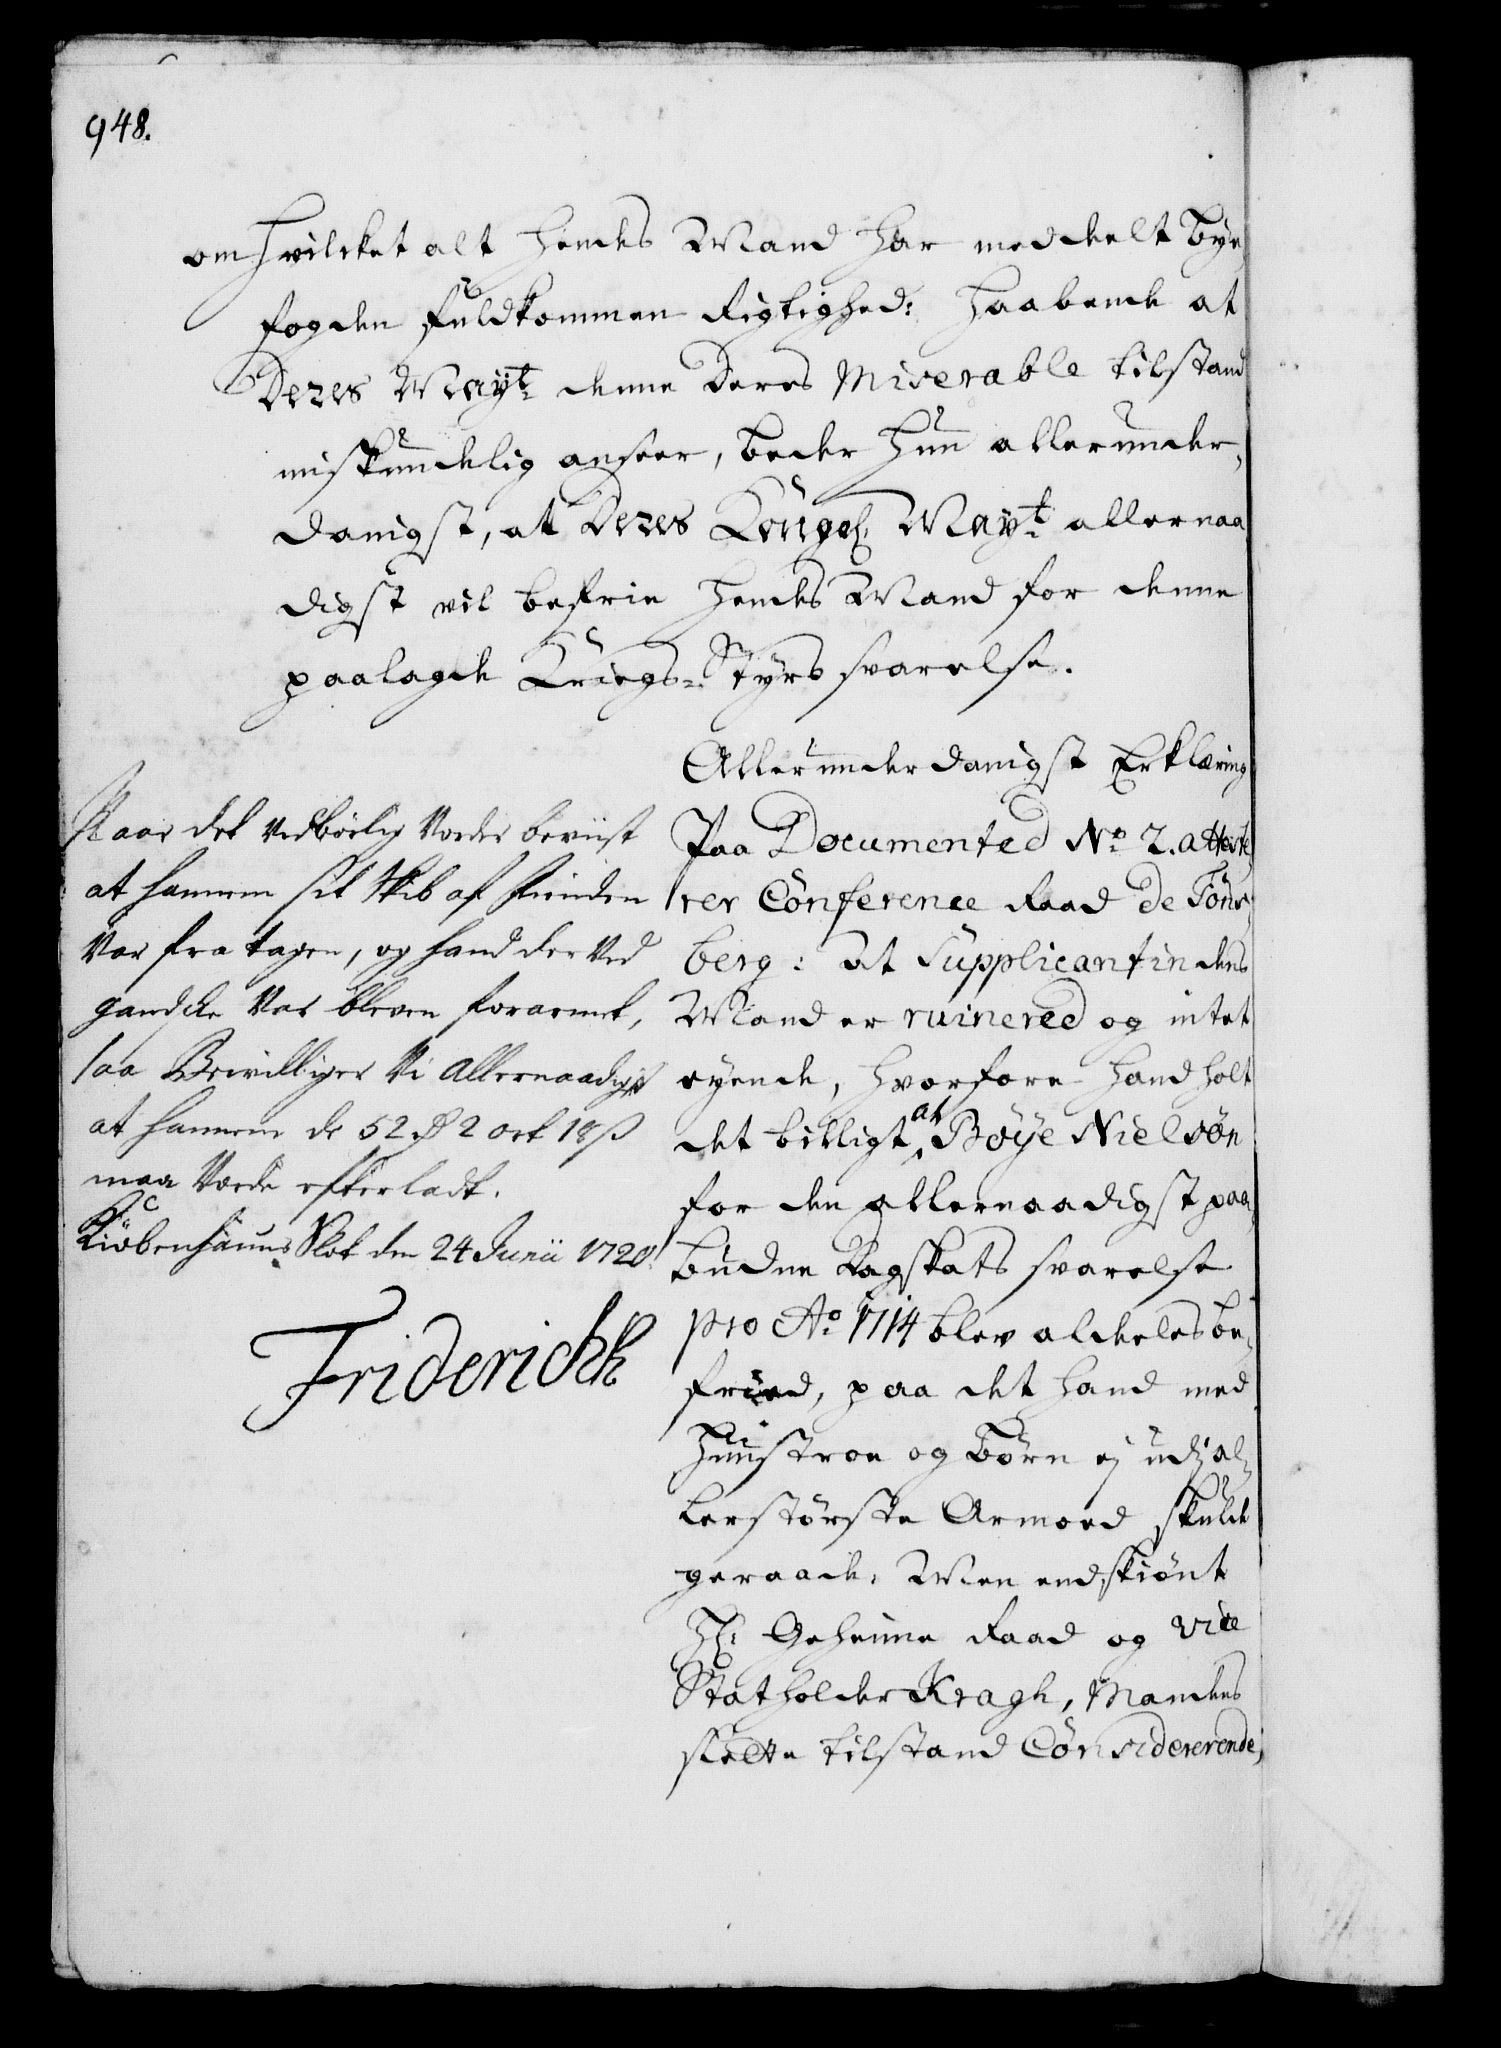 948.
om hvilcket alt hendes Mand har meddelt bye
fogden fuldkommen Rigtighed: haabende at
Deres Mayt. denne deres Miserable tilstand
miskundelig anseer, beder hun allerunder,
danigst, at Deres Kongel. Mayt. allernaa
digst vil befrie hendes Mand for denne
paalagde Kriegs-Styrs svarelse.
Allerunderdanigst Erklæring
Paa Documented No. 2. atteste
rer Conference Raad De Tøns,
berg: at Supplicantindens
Mand er ruinered og intet
eyende, hvorfore hand holt
det billigt at Böye Nielsøn
for den allernaadigst paa,
budne Dagskats svarelse
pro Ao. 1714 blev aldeles be,
fried, paa det hand med
Huustroe og børn ej udj al,
lerstørste Armoed skulde
geraade, Men endskiønt
Hr. Geheime Raad og Vice
Statholder Kragh, Mandens
slette tilstand Considererende,
Naar det vedbørlig vorder beviist
at hannem sit Skib af Fienden
var fra tagen, og hand der ved
gandske var bleven forarmet,
saa Bevilliger Vi Allernaadigst
at hannem de 52 rd 2 ort 18 ß
maa vorde efterladt.
Kiøbenhauns Slot den 24 Junii 1720.
Friderich R